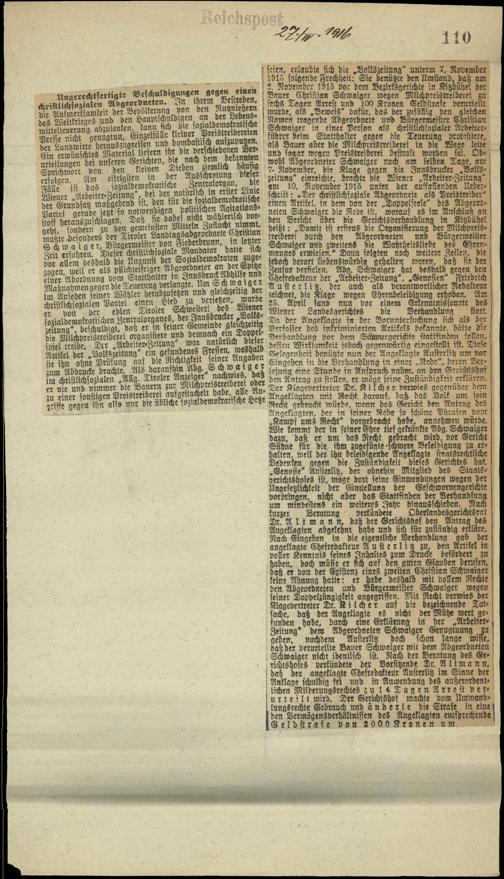 Reichspost
27/IV. 1916
110
Ungerechtfertigte Beschuldigungen gegen einen
christlichsozialen Abgeordneten. In ihrem Bestreben,
die Aufmerksamkeit der Bevölkerung von den Nutznießern
des Weltkrieges und den Hauptschuldigen an der Lebens-
mittelteuerung abzulenken, kann sich die sozialdemokratische
Presse nicht genugtun, Einzelfälle kleiner Preistreibereien
der Landwirte herauszugreifen und bombastisch aufzuputzen.
Ein erwünschtes Material liefern ihr die verschiedenen Ver-
urteilungen bei unseren Gerichten, die nach dem bekannten
Sprichwort von den kleinen Dieben ziemlich häufig
erfolgen. Am eifrigsten in der Ausschrotung dieser
Fälle ist das sozialdemokratische Zentralorgan, die
Wiener „Arbeiter-Zeitung", bei der natürlich in erster Linie
der Grundsatz maßgebend ist, den für die sozialdemokratische
Partei gerade jetzt so notwendigen politischen Agitations-
stoff herauszuschlagen. Daß sie dabei nicht wählerisch vor-
geht, sondern zu den gemeinsten Mitteln Zuflucht nimmt,
mußte besonders der Tiroler Landtagsabgeordnete Christian
Schwaiger, Bürgermeister von Fieberbrunn, in letzter
Zeit erfahren. Dieser christlichsoziale Mandatar hatte sich
vor allem deshalb die Ungunst der Sozialdemokraten zuge-
zogen, weil er als pflichteifriger Abgeordneter an der Spitze
einer Abordnung vom Statthalter in Innsbruck Abhilfe und
Maßnahmen gegen die Teuerung verlangte. Um Schwaiger
im Ansehen seiner Wähler herabzusetzen und gleichzeitig der
christlichsozialen Partei einen Hieb zu versetzen, wurde
er von der edlen Tiroler Schwester des Wiener
sozialdemokratischen Zentralorgans, der Innsbrucker „Volks-
zeitung", beschuldigt, daß er in seiner Gemeinde gleichzeitig
die Milchpreistreiberei organisiere und demnach ein Doppel-
spiel treibe. Der „Arbeiter-Zeitung" war natürlich dieser
Artikel der „Volkszeitung" ein gefundenes Fressen, weshalb
sie ihn ohne Prüfung auf die Richtigkeit seiner Angaben
zum Abdruck brachte. Als daraufhin Abg. Schwaiger
im christlichsozialen „Allg. Tiroler Anzeiger" nachwies, daß
er nie und nimmer die Bauern zur Milchpreistreiberei oder
zu einer sonstigen Preistreiberei aufgestachelt habe, alle An-
griffe gegen ihn also nur die übliche sozialdemokratische Hetze
seien, erlaubte sich die „Volkszeitung" unterm 7. November
1915 folgende Frechheit: Sie benützte den Umstand, daß am
2. November 1915 vor dem Bezirksgerichte in Kitzbühel der
Bauer Christian Schwaiger wegen Milchpreistreiberei zu
sechs Tagen Arrest und 100 Kronen Geldstrafe verurteilt
wurde, als „Beweis" dafür, das der zufällig den gleichen
Namen tragende Abgeordnete und Bürgermeister Christian
Schwaiger in einer Person als christlichsozialer Arbeiter-
führer beim Statthalter gegen die Teuerung protestiere,
als Bauer aber die Milchpreistreiberei in die Wege leite
und sogar wegen Preistreiberei bestraft worden sei. Ob-
wohl Abgeordneter Schwaiger noch am selben Tage, am
7. November, die Klage gegen die Innsbrucker „Volks-
zeitung" einreichte, brachte die Wiener „Arbeiter-Zeitung"
am 10. November 1915 unter der auffallenden Ueber-
schrift: „Der christlichsoziale Abgeordnete als Preistreiber"
einen Artikel, in dem von der „Doppelseele" des Abgeord-
neten Schwaiger die Rede ist, worauf es im Anschluß an
den Bericht über die Gerichtsverhandlung in Kitzbühel
heißt: „Damit ist erstens die Organisierung der Milchpreis-
treiberei durch den Abgeordneten und Bürgermeister
Schwaiger und zweitens die Wahrheitsliebe des Ehren-
mannes erwiesen." Dann folgten noch weitere Zeilen, die
jedoch derart leidenschaftlich gehalten waren, daß sie der
Zensur verfielen. Abg. Schwaiger hat deshalb gegen den
Chefredakteur der „Arbeiter-Zeitung", „Genossen" Friedrich
Austerlitz, der auch als verantwortlicher Redakteur
zeichnete, die Klage wegen Ehrenbeleidigung erhoben. Am
25. April fand nun vor einem Erkenntnissenate des
Wiener Landesgerichtes die Verhandlung statt.
Da der Angeklagte in der Voruntersuchung sich als der
Verfasser des inkriminierten Artikels bekannte, hätte die
Verhandlung vor dem Schwurgerichte stattfinden sollen,
dessen Wirksamkeit jedoch gegenwärtig eingestellt ist. Diese
Gelegenheit benützte nun der Angeklagte Austerlitz um vor
Eingehen in die Verhandlung in einer „Rede", deren Ver-
lesung eine Stunde in Anspruch nahm, an den Gerichtshof
den Antrag zu stellen, er möge seine Zuständigkeit erklären.
Der Klagevertreter Dr. Kilcher verwies gegenüber dem
Angeklagten mit Recht darauf, daß das Volk um sein
Recht gebracht würde, wenn das Gericht den Antrag des
Angeklagten, der in seiner Rede so schöne Phrasen vom
„Kampf ums Recht" vorgebracht habe, annehmen würde.
Wie kommt der in seiner Ehre tief gekränkte Abg. Schwaiger
dazu, daß er um das Recht gebracht wird, vor Gericht
Sühne für die ihm zugefügte schwere Beleidigung zu er-
halten, weil der ihn beleidigende Angeklagte staatsrechtliche
Bedenken gegen die Zuständigkeit dieses Gerichtes hat.
„Genosse" Austerlitz, der ohnehin Mitglied des Staats-
gerichtshofes ist, möge dort seine Einwendungen wegen der
Ungesetzlichkeit der Einstellung der Geschwornengerichte
vorbringen, nicht aber das Stattfinden der Verhandlung
um mindestens ein weiteres Jahr hinausschieben. Nach
kurzer Beratung verkündete Oberlandesgerichtsrat
Dr. Altmann, daß der Gerichtshof den Antrag des
Angeklagten abgelehnt habe und sich für zuständig erkläre.
Nach Eingehen in die eigentliche Verhandlung gab der
angeklagte Chefredakteur Austerlitz zu, den Artikel in
voller Kenntnis seines Inhaltes zum Drucke befördert zu
haben, doch müßte er sich auf den guten Glauben berufen,
daß er von der Existenz eines zweiten Christian Schwaiger
keine Ahnung hatte; er habe deshalb mit vollem Rechte
den Abgeordneten und Bürgermeister Schwaiger wegen
seiner Doppelzüngigkeit angegriffen. Mit Recht verwies der
Klagevertreter Dr. Kilcher auf die bezeichnende Tat-
sache, daß der Angeklagte es nicht der Mühe wert ge-
funden habe, durch eine Erklärung in der „Arbeiter-
Zeitung" dem Abgeordneten Schwaiger Genugtuung zu
geben, nachdem Austerlitz doch schon lange wisse,
daß der verurteilte Bauer Schwaiger mit dem Abgeordneten
Schwaiger nicht identisch ist. Nach der Beratung des Ge-
richtshofes verkündete der Vorsitzende Dr. Altmann,
daß der angeklagte Chefredakteur Austerlitz im Sinne der
Anklage schuldig sei und in Anwendung des außerordent-
lichen Milderungsrechtes zu 14 Tagen Arrest ver-
urteilt wird. Der Gerichtshof machte vom Umwand-
lungsrechte Gebrauch und änderte die Strafe in eine
den Vermögensverhältnissen des Angeklagten entsprechende
Geldstrafe von 2000 Kronen um.